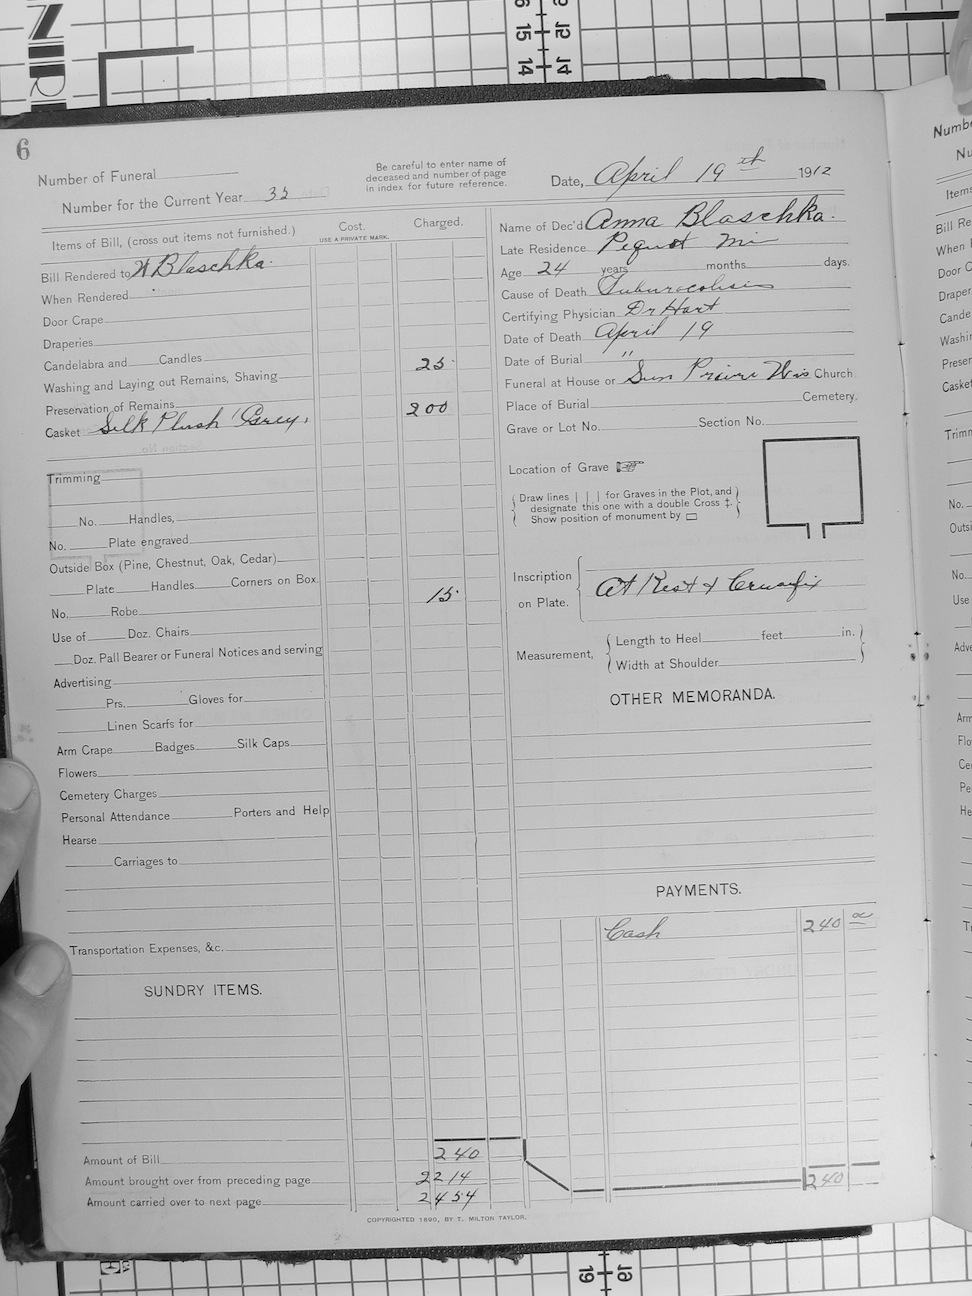 6
Number of Funeral
Number for the Current Year 32
Be careful to enter name of
deceased and number of page
in index for future reference.
Date, April 19th 1912
Items of Bill, (cross out items not furnished.)
Cost.
USE A PRIVATE MARK.
Charged.
Bill Rendered to W Blaschka.
When Rendered
Door Crape
Draperies
Candelabra and Candles
Washing and Laying out Remains, Shaving 25
Preservation of Remains
Casket Silk Plush Grey, 200
Trimming
No. Handles,
No. Plate engraved
Outside Box (Pine, Chestnut, Oak, Cedar)
Plate Handles Corners on Box
No. Robe 15
Use of Doz. Chairs
Doz. Pall Bearer or Funeral Notices and serving
Advertising
Prs. Gloves for
Linen Scarfs for
Arm Crape Badges Silk Caps
Flowers
Cemetery Charges
Personal Attendance Porters and Help
Hearse
Carriages to
Transportation Expenses, &c.
SUNDRY ITEMS.
Amount of Bill 240
Amount brought over from preceding page 2214
Amount carried over to next page 2454
Name of Dec'd Anna Blaschka.
Late Residence Pequot Min
Age 24 years months days.
Cause of Death Tuburcolusis
Certifying Physician Dr Hart
Date of Death April 19
Date of Burial "
Funeral at House or Sun Prairie Wis Church
Place of Burial Cemetery.
Grave or Lot No. Section No.
Location of Grave
Draw lines | | | for Graves in the Plot, and
designate this one with a double Cross ‡.
Show position of monument by
Inscription
on Plate.
At Rest & Crucifix
Measurement,
Length to Heel feet in.
Width at Shoulder
OTHER MEMORANDA.
PAYMENTS.
Cash 240 oo
240
COPYRIGHTED 1890, BY T. MILTON TAYLOR.
Number
Nu
Items
Bill Re
When
Door C
Draper
Cande
Washin
Preser
Casket
Trimm
No.
Outsi
No.
Use
Adve
Arm
Flo
Ce
Pe
He
15
14
19